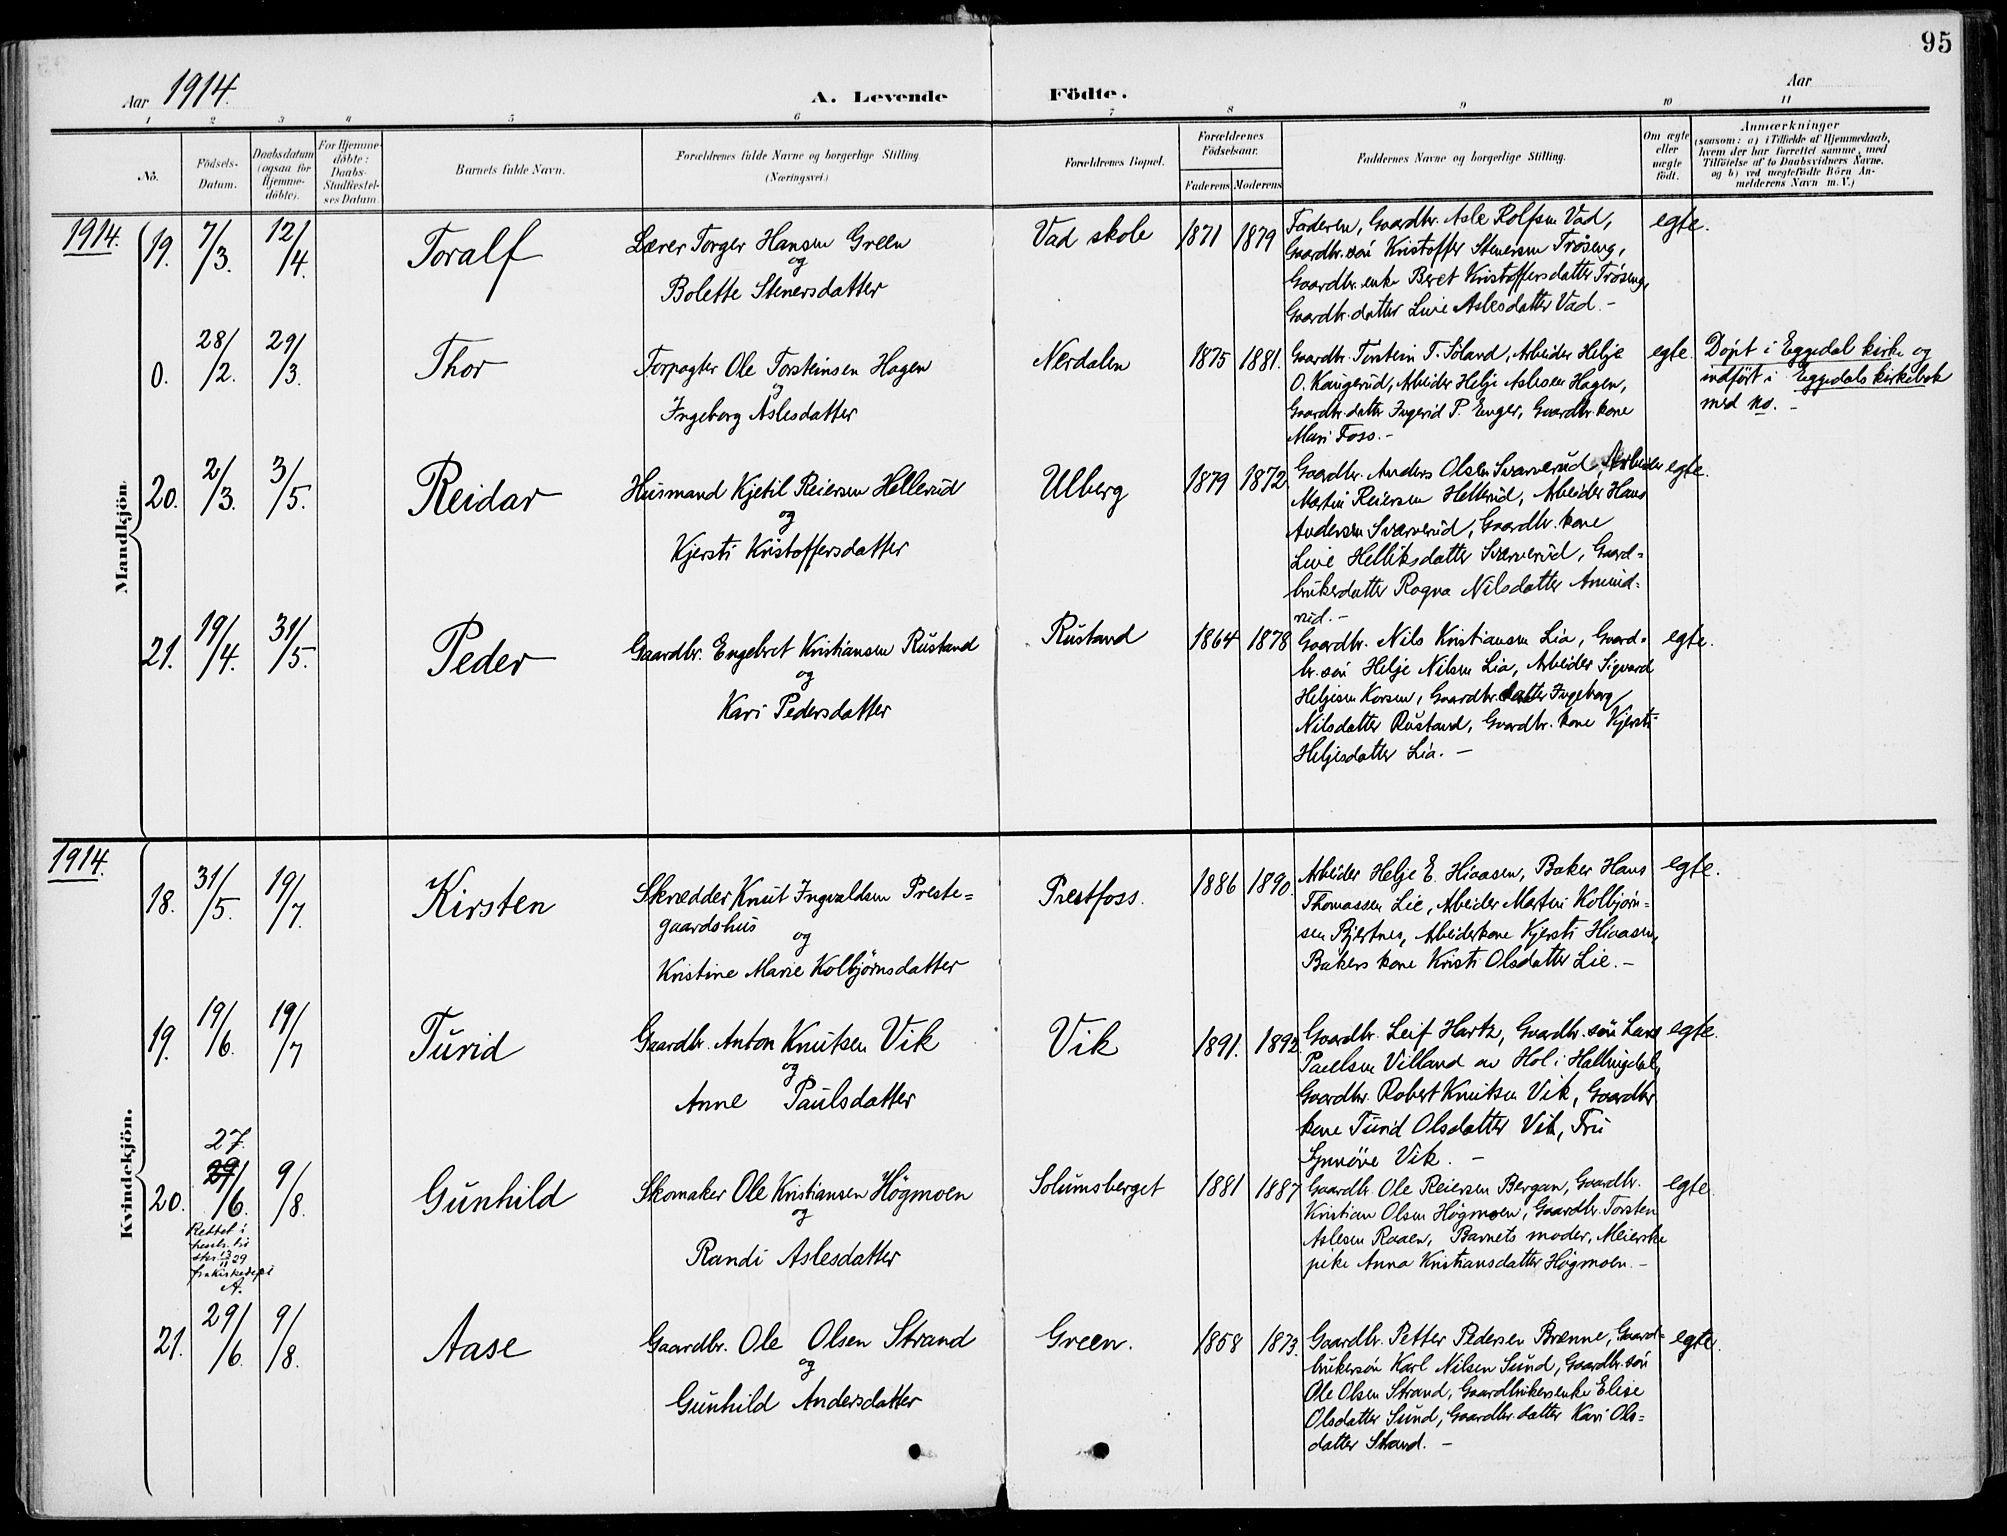 95
Aar 1914.
A. Levende Födte.
Aar
1 2 3 4 5 6 7 8 9 10 11
No.
Födsels-
Datum.
Daabsdatum
(ogsaa for
Hjemme-
döbte).
For Hjemme-
döbte:
Daabs-
Stadfæstel-
ses Datum.
Barnets fulde Navn.
Forældrenes fulde Navne og borgerlige Stilling
(Næringsvei.)
Forældrenes Bopæl.
Forældrenes
Födselsaar.
Faderens Moderens
Faddernes Navne og borgerlige Stilling.
Om ægte
eller
uægte
födt.
Anmærkninger
(saasom: a) i Tilfælde af Hjemmedaab,
hvem der har forrettet samme, med
Tilföielse af to Daabsvidners Navne.
og b) ved uægtefödte Börn An-
melderens Navn m. V.)
Mandkjön.
1914.
19. 7/3. 12/4. Toralf
Lærer Torger Hansen Green
og
Bolette Stenersdatter
Vad skole 1871 1879
Faderen, Gaardbr. Asle Rolfsen Vad,
Gaardbr. søn Kristoffer Stenersen Trøseng,
Gaardbr. enke Beret Kristoffersdatter Trøseng,
Gaardbr. datter Live Aslesdatter Vad. -
egte.
0. 28/2. 29/3. Thor
Forpagter Ole Torsteinsen Hagen
og
Ingeborg Aslesdatter
Nerdalen 1875 1881.
Gaardbr. Torstein T. Søland, Arbeider Helje
O. Kaugerud, Arbeider Helje Aslesen Hagen,
Gaardbr. datter Ingerid P. Enger, Gaardbr. kone
Mari Foss. -
egte.
Døpt i Eggedal kirke og
indført i Eggedals kirkebok
med no. -
20. 2/3. 3/5. Reidar
Husmand Kjetil Reiersen Hellerud
og
Kjersti Kristoffersdatter
Ulberg 1879 1872
Gaardbr. Anders Olsen Sværverud, Arbeider
Martin Reiersen Hellerud, Arbeider Hans
Andersen Sværverud, Gaardbr. kone
Live Helliksdatter Sværverud, Gaard-
brukerdatter Ragna Nilsdatter Amund-
rud. -
egte.
21. 19/4. 31/5. Peder
Gaardbr. Engebret Kristiansen Rustand
og
Kari Pedersdatter
Rustand 1864 1878
Gaardbr. Nils Kristiansen Lia, Gaard-
br. søn Helje Nilsen Lia, Arbeider Sigvard
Heljesen Korsen, Gaardbr. datter Ingeborg
Nilsdatter Rustand, Gaardbr. kone Kjersti
Heljesdatter Lia. -
egte.
Kvindekjön.
1914.
18. 31/5. 19/7. Kirsten
Skrædder Knut Ingvaldsen Preste-
gaardshus
og
Kristine Marie Kolbjørnsdatter
Prestfoss. 1886 1890.
Arbeider Helje E. Hiaasen, Baker Hans
Thomassen Lie, Arbeider Martin Kolbjørn-
sen Bjertnes, Arbeiderkone Kjersti Hiaasen,
Bakers kone Kristi Olsdatter Lie. -
egte.
19. 19/6. 19/7 Turid
Gaardbr. Anton Knutsen Vik
og
Anne Paulsdatter
Vik 1891. 1892.
Gaardbr. Leif Hartz, Gaardbr. søn Lars
Paulsen Villand av Hol i Hallingdal,
Gaardbr. Robert Knutsen Vik, Gaardbr
kone Turid Olsdatter Vik, Fru
Synnöve Vik. -
egte.
27.
20. 29/6. 9/8. Gunhild
Rettet i
13/11 29
A.
Skomaker Ole Kristiansen Högmoen
og
Randi Aslesdatter
Solumsberget 1881 1887
Gaardbr. Ole Reiersen Bergan, Gaardbr.
Kristian Olsen Högmoen, Gaardbr. Torsten
Aslesen Raaen, Barnets moder, Meierske
pike Anna Kristiansdatter Högmoen. -
egte.
21. 29/6. 9/8. Aase
Gaardbr. Ole Olsen Strand
og
Gunhild Andersdatter
Green. 1858 1873.
Gaardbr. Petter Pedersen Brenne, Gaard-
brukersøn Karl Nilsen Sund, Gaardbr. søn
Ole Olsen Strand, Gaardbrukersenke Elise
Olsdatter Sund, Gaardbr. datter Kari Ols-
datter Strand. -
egte.